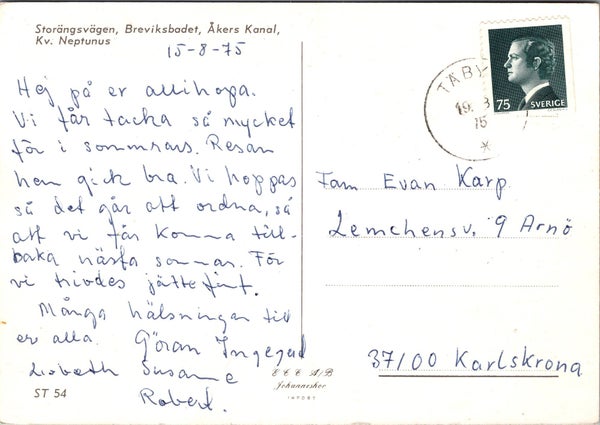 Storängsvägen, Breviksbadet, Åkers Kanal,
Kv. Neptunus
15-8-75
Hej på er allihopa.
Vi får tacka så mycket
för i sommras. Resan
hem gick bra. Vi hoppas
så det går att ordna, så
att vi får komma till-
baka nästa sommar. För
vi trivdes jättefint.
Många hälsningar till
er alla. Göran Ingegerd
Lisbeth Susanne
Robert.
ST 54
TÄBY
19. 8
75
75 SVERIGE
Fam Evan Karp
Lemchensv. 9 Arnö
37100 Karlskrona
E C C A/B
Johanneshov
IMPORT